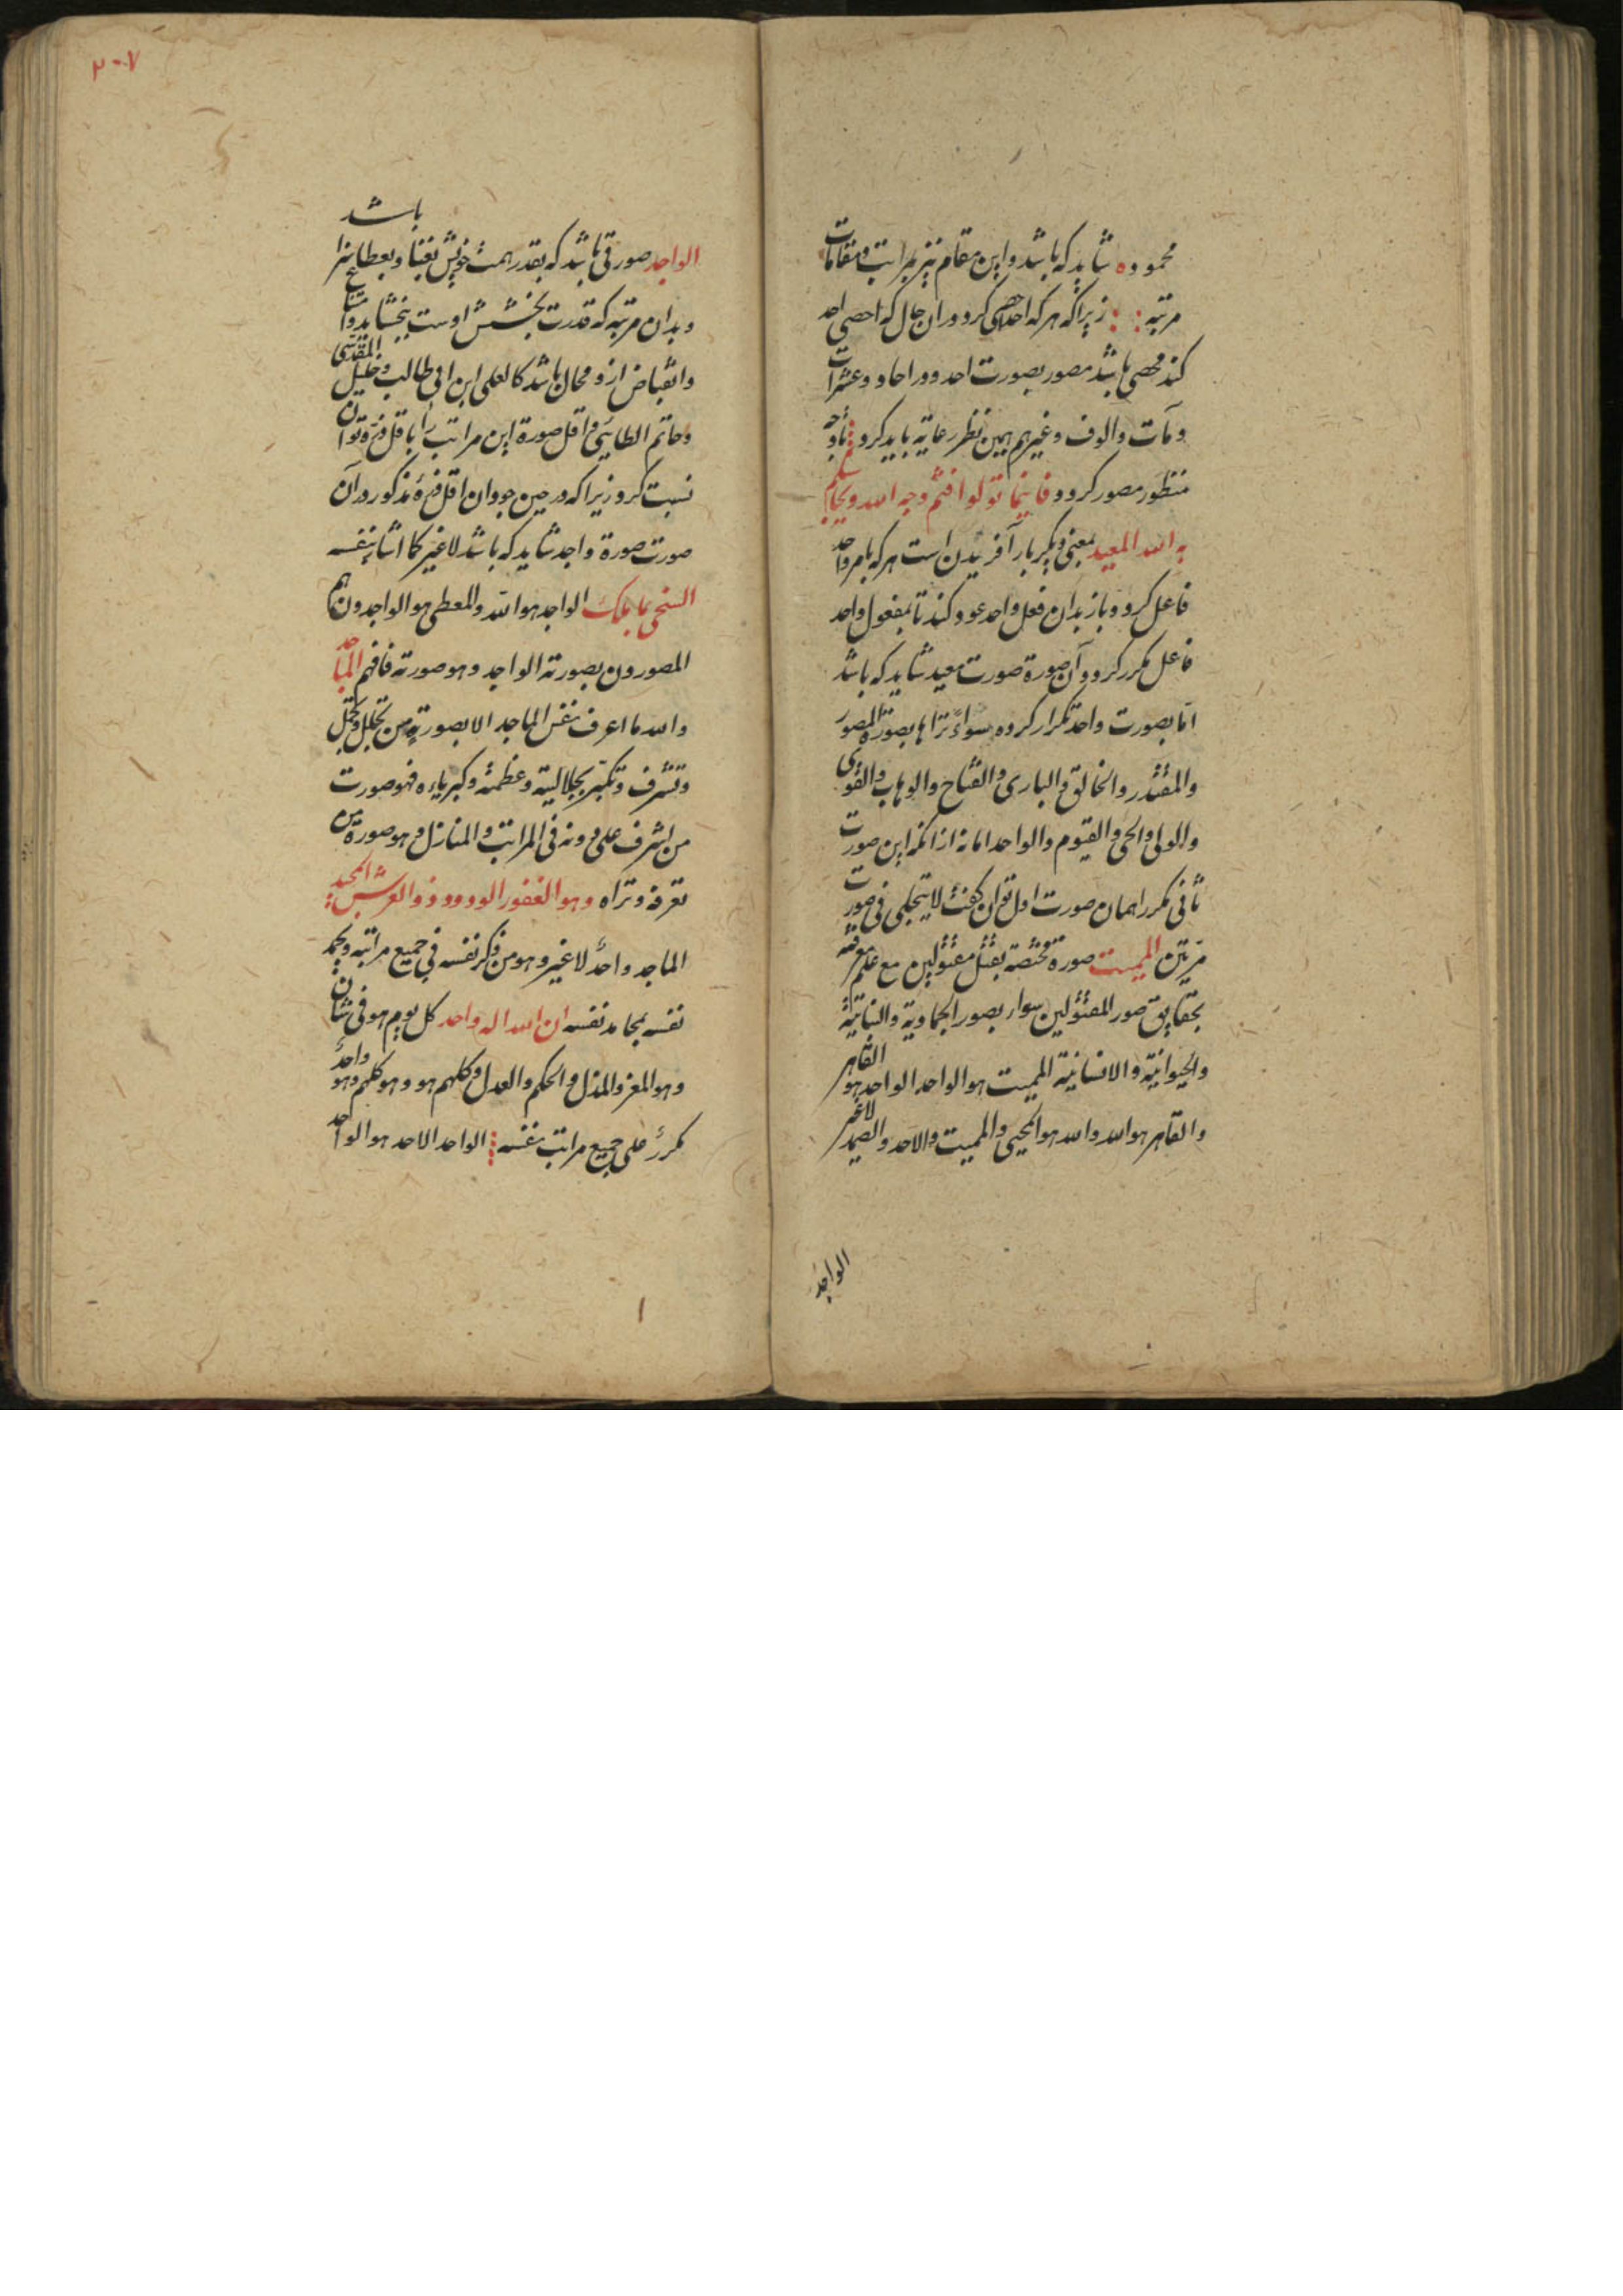 محموده شاید که باشد و این مقام نیز بمراتب و مقامات
مرتبه زیرا که هر که احصی کرد و در ان حال که احصی احد
کند محصی باشد مصور بصورت احد و در احاد و عشرات
و مآت و الوف و غیرهم همین نظر رعایه باید کرد
منظور مصور کردد فاینما تولوا فثم وجه الله
به الله المعید بمعنی دیکر بار آفریدن است هر که بامر واحد
فاعل کردد و باز بدان فعل واحد عود کند تا بمفعول واحد
فاعل مکرر کردد و آن صورة صورت معید شاید که باشد
اما بصورت واحد تکرار کرده سواء تراها بصورة المصور
والمقتدر والخالق والباری والفتاح والوهاب والقوی
والولی والحی والقیوم والواحد اما نه از انکه این صورت
ثانی مکرر اهمان صورت اول توان کفت لا یتجلی فی صورت
مرتین الممیت صورة مختصة بقتل مقتولین مع علم معرفته
بحقایق صور المقتولین سواء بصور الجمادیة والنباتیة
والحیوانیة والانسانیة الممیت هو الواحد الواحد هو القاهر
والقاهر هو الله والله هو المحیی والممیت والاحد والصمد لاغیر
الواجد
٢٠٧
باشد
الواجد صورتی باشد که بقدر همت خویش بغنا و بعطا سزا
و بدان مرتبه که قدرت بخشش اوست بخشاید و امتناع
و انقباض ازو محال باشد کالعلی ابن ابی طالب و خلیل المقدسی
و حاتم الطائی و اقل صورة این مراتب را باقل ذرة توان
نسبت کرد زیرا که در حین جود ان اقل ذرهٔ مذکور در آن
صورت صورة واجد شاید که باشد لاغیر کما اشار بنفسه
السخی بما ملک الواجد هو الله والمعطی هو الواجدون هم
المصورون بصورته الواجد وهو صورته فافهم الماجد
والله ما اعرف نفس الماجد الا بصورة من تجلل و تجمل
وتشرف وتکبر بجلالیته وعظمته وکبریاءه فهو صورت
من اشرف علی دونه فی المراتب والمنازل وهو صورة من
تعرفه وتراه وهو الغفور الودود ذو العرش المجید
الماجد واحد لاغیر وهو من ذکر نفسه فی جمیع مراتبه ویحمد
نفسه بمحامد نفسه ان الله اله واحد کل یوم هو فی شان
وهو المعز والمذل والحکم والعدل وکلهم هو وهو کلهم وهو واحد
مکرر علی جمیع مراتب نفسه الواحد الاحد هو الواحد